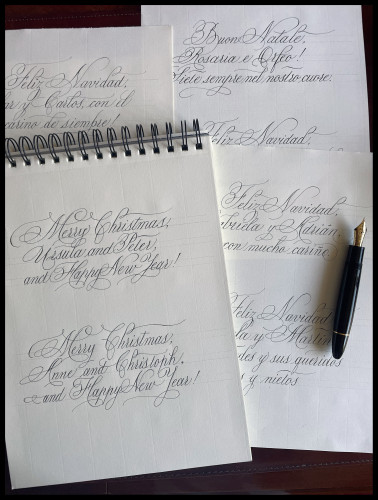 Feliz Navidad,
y Carlos, con el
cariño de siempre!
Buon Natale,
Rosaria e Orfeo!
Siete sempre nel nostro cuore.
Feliz Navidad,
Merry Christmas,
Ursula and Peter,
and Happy New Year!
Merry Christmas,
Anne and Christoph,
and Happy New Year!
Feliz Navidad,
y Adrián
con mucho cariño
Feliz Navidad
y Martín
y sus queridos
y nietos